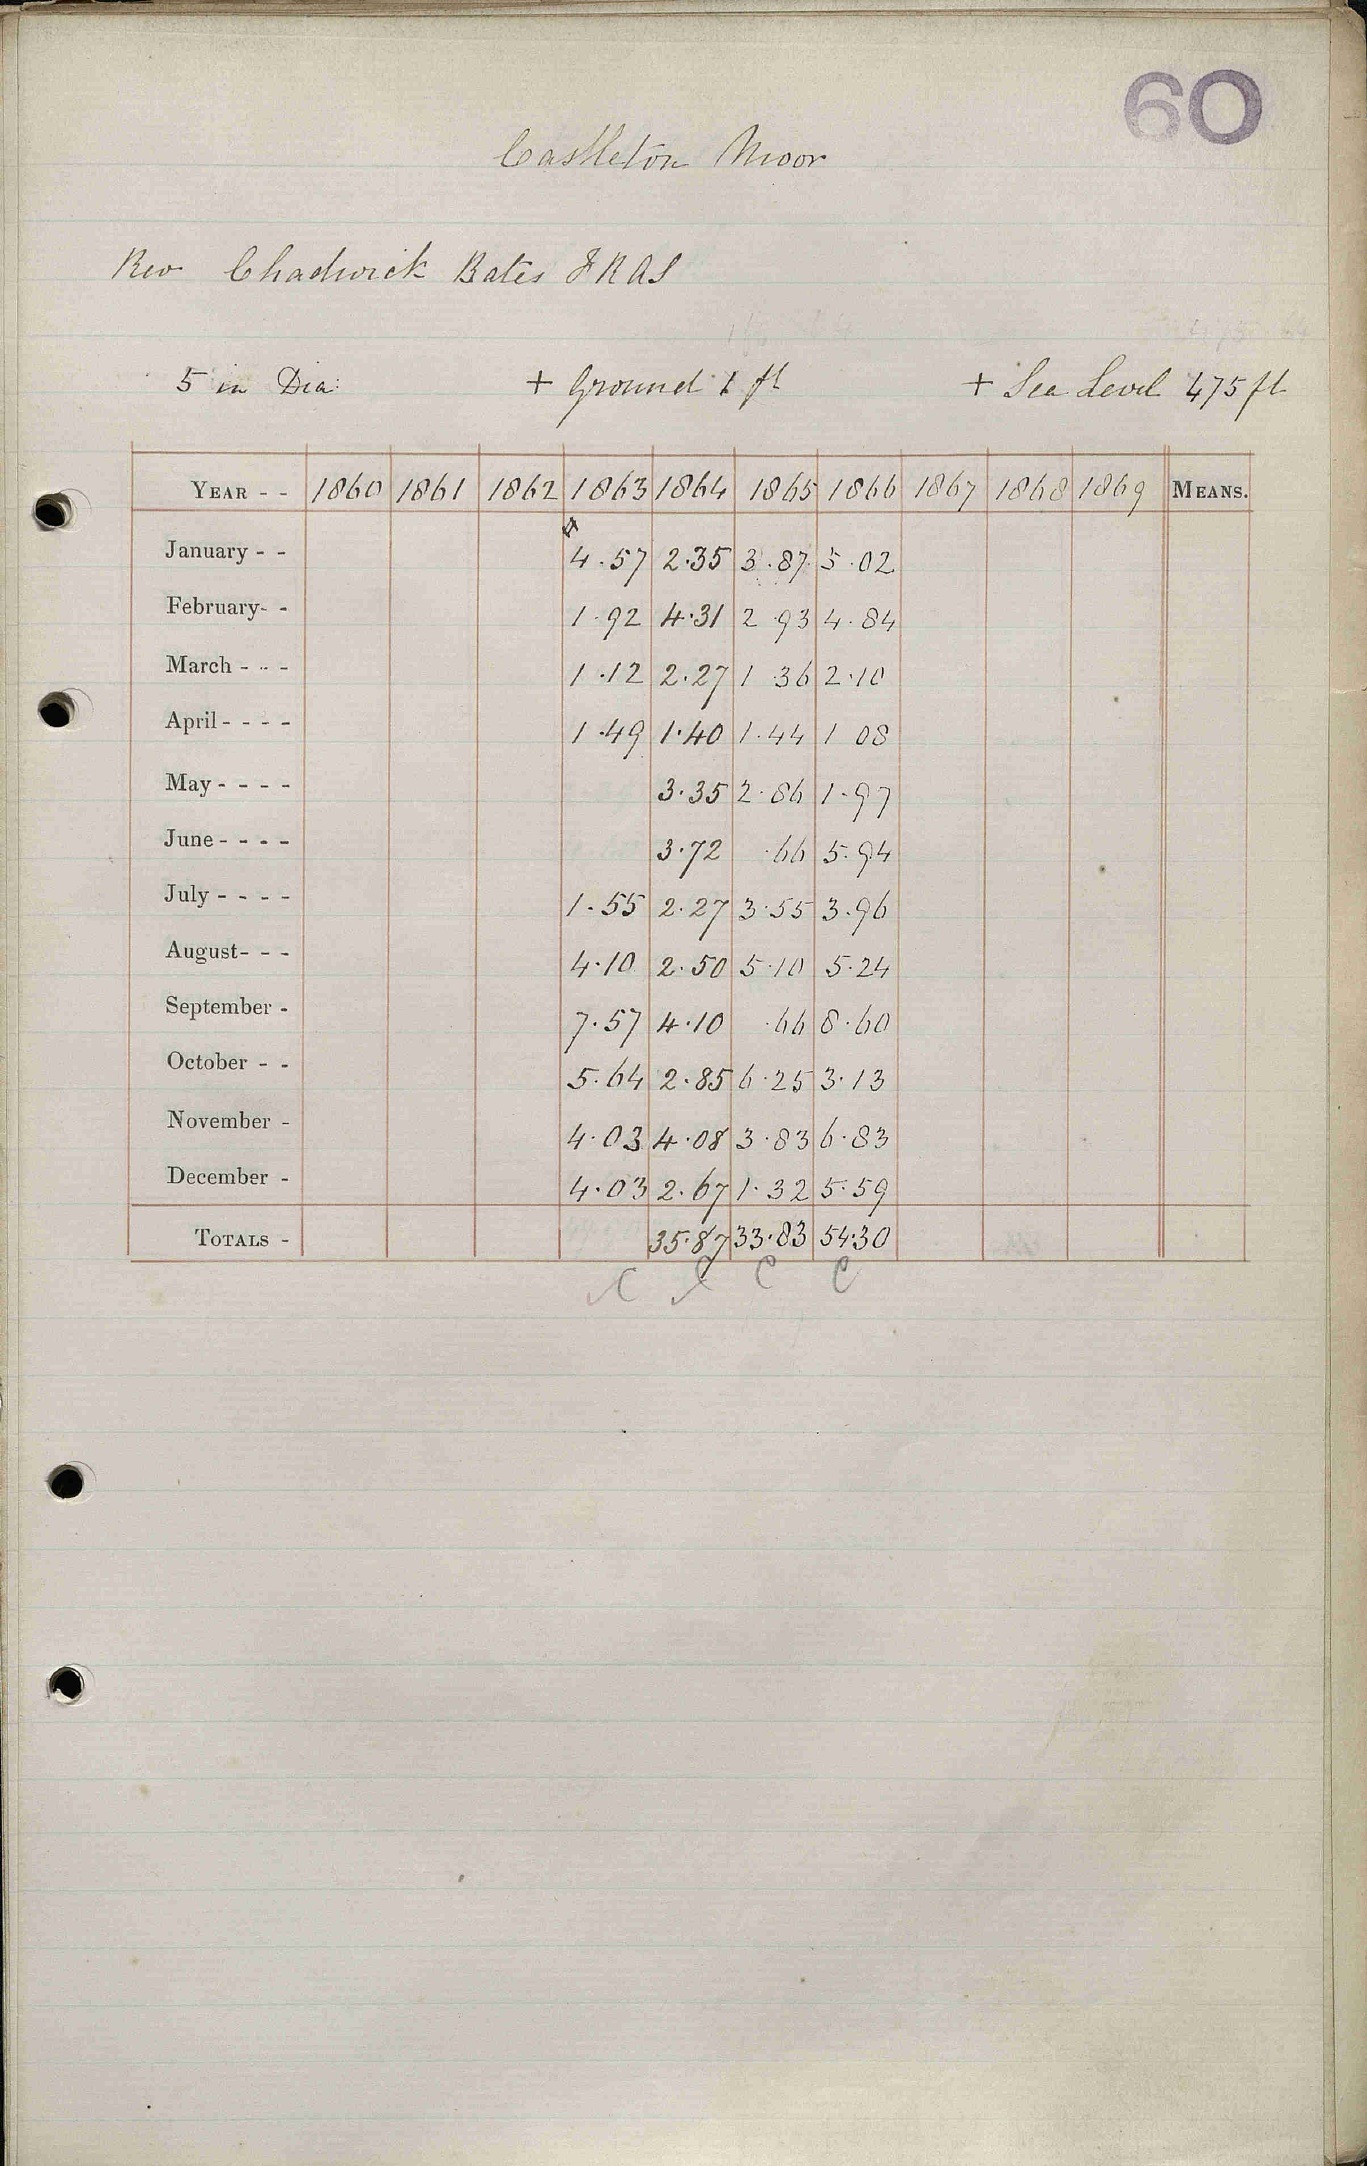 60
Castleton Moor
Rev Chadwick Bates FRAS
5 in Dia: + Ground 1 ft + Sea Level 475 ft
YEAR - - 1860 1861 1862 1863 1864 1865 1866 1867 1868 1869 MEANS.
January - - 4.57 2.35 3.87 5.02
February- - 1.92 4.31 2.93 4.84
March - - - 1.12 2.27 1.36 2.10
April - - - - 1.49 1.40 1.44 1 08
May - - - - 3.35 2.86 1.97
June - - - - 3.72 .66 5.94
July - - - - 1.55 2.27 3.55 3.96
August- - - 4.10 2.50 5.10 5.24
September - 7.57 4.10 .66 8.60
October - - 5.64 2.85 6.25 3.13
November - 4.03 4.08 3.83 6.83
December - 4.03 2.67 1.32 5.59
TOTALS - 35.87 33.83 54.30
C C C C